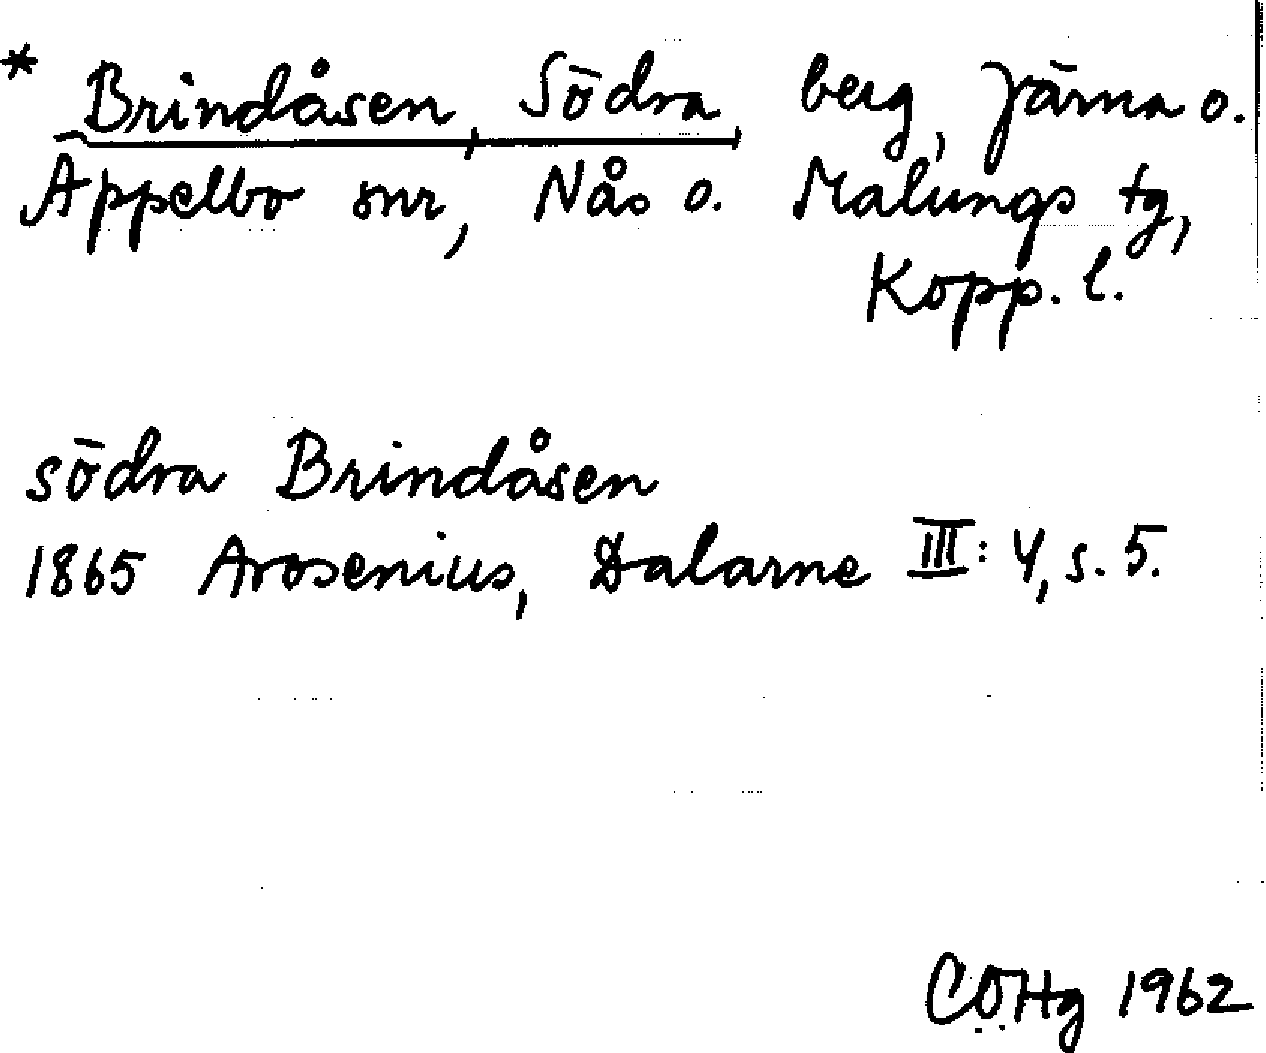 * Brindåsen, Södra, berg, Järna o.
Äppelbo snr, Nås o. Malungs tg,
Kopp. l.
södra Brindåsen
1865 Arosenius, Dalarne III: 4, s. 5.
CÖHg 1962